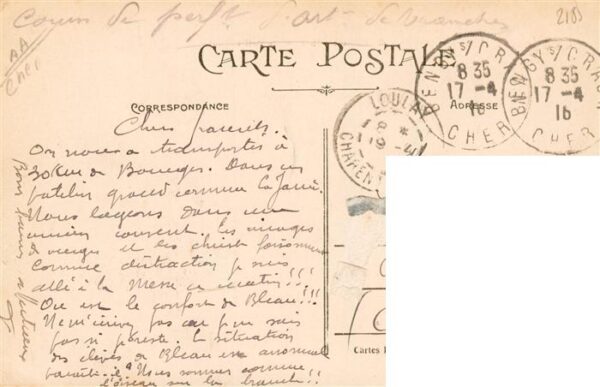 Cours de perft d'art. de tranchées
2185
AA
Cher
CARTE POSTALE
CORRESPONDANCE
ADRESSE
BENGY S/CRAON
8 35
17 -4
16
CHER
BENGY S/CRAON
8 35
17 -4
16
CHER
LOULAY
8 *
19 -4
CHARENTE
Chers parents.
On nous a transportés à
30 km de Bourges. Dans un
patelin grand comme la Jarrie.
Nous logeons dans un
ancien couvent. Les images
de vierges et les christ foisonnent
Comme distraction je suis
allé à la Messe ce matin!!!
Où est le confort de Bleau!!!
pas
pas si
La situation
des élèves de Bleau est
Nous sommes comme
l'oiseau sur la branche!!
Bons baisers affectueux
Cartes